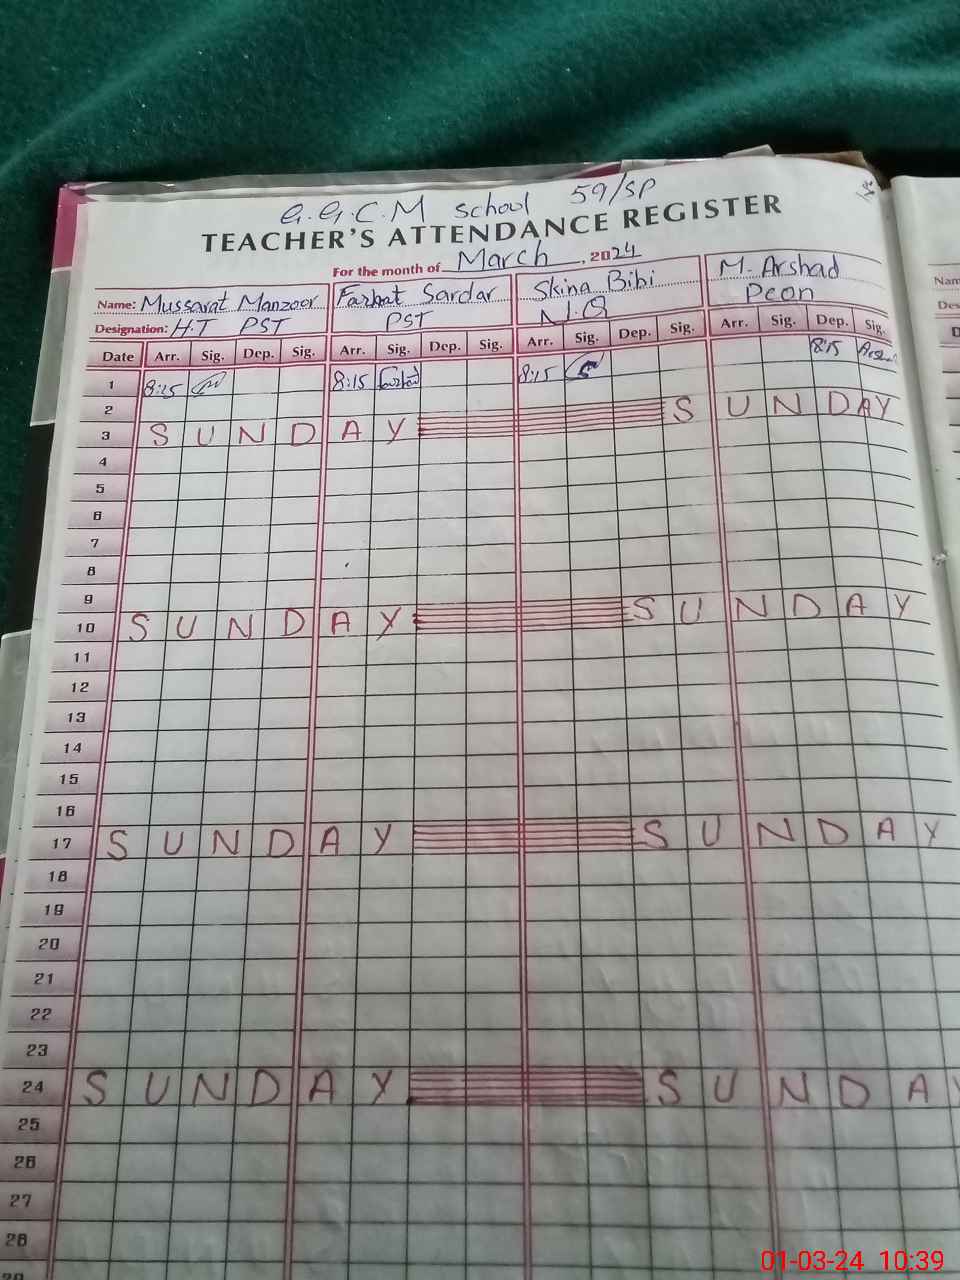 G.G.C.M School 59/SP
TEACHER'S ATTENDANCE REGISTER
For the month of March, 2024
Name: Mussarat Manzoor Farhat Sardar Skina Bibi M. Arshad
Designation: H.T PST PST N.Q Peon
Date Arr. Sig. Dep. Sig. Arr. Sig. Dep. Sig. Arr. Sig. Dep. Sig. Arr. Sig. Dep. Sig.
1 8:15 8:15 Farhat 8:15 8:15 Arshad
2
3 SUNDAY SUNDAY
4
5
6
7
8
9
10 SUNDAY SUNDAY
11
12
13
14
15
16
17 SUNDAY SUNDAY
18
19
20
21
22
23
24 SUNDAY SUNDAY
25
26
27
28
29
Nam
Des
D
01-03-24 10:39